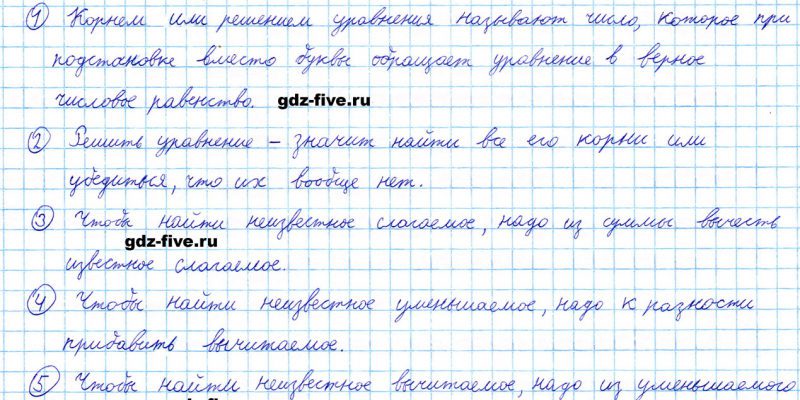 1 Корнем или решением уравнения называют число, которое при
подстановке вместо буквы обращает уравнение в верное
числовое равенство. gdz-five.ru
2 Решить уравнение – значит найти все его корни или
убедиться, что их вообще нет.
3 Чтобы найти неизвестное слагаемое, надо из суммы вычесть
gdz-five.ru
известное слагаемое.
4 Чтобы найти неизвестное уменьшаемое, надо к разности
прибавить вычитаемое.
5 Чтобы найти неизвестное вычитаемое, надо из уменьшаемого